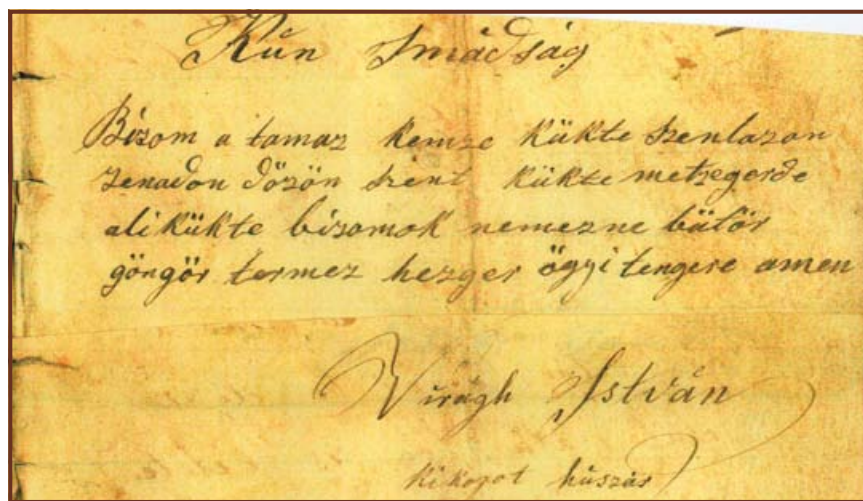 Kún Imádság
Bízom a tamaz kemze kükte szenlazon
zenadon dözön szent kükte metzegerde
ali kükte bizomok nemezne bütör
göngör termez hezger ögyi tengere amen
Virágh István
huszár